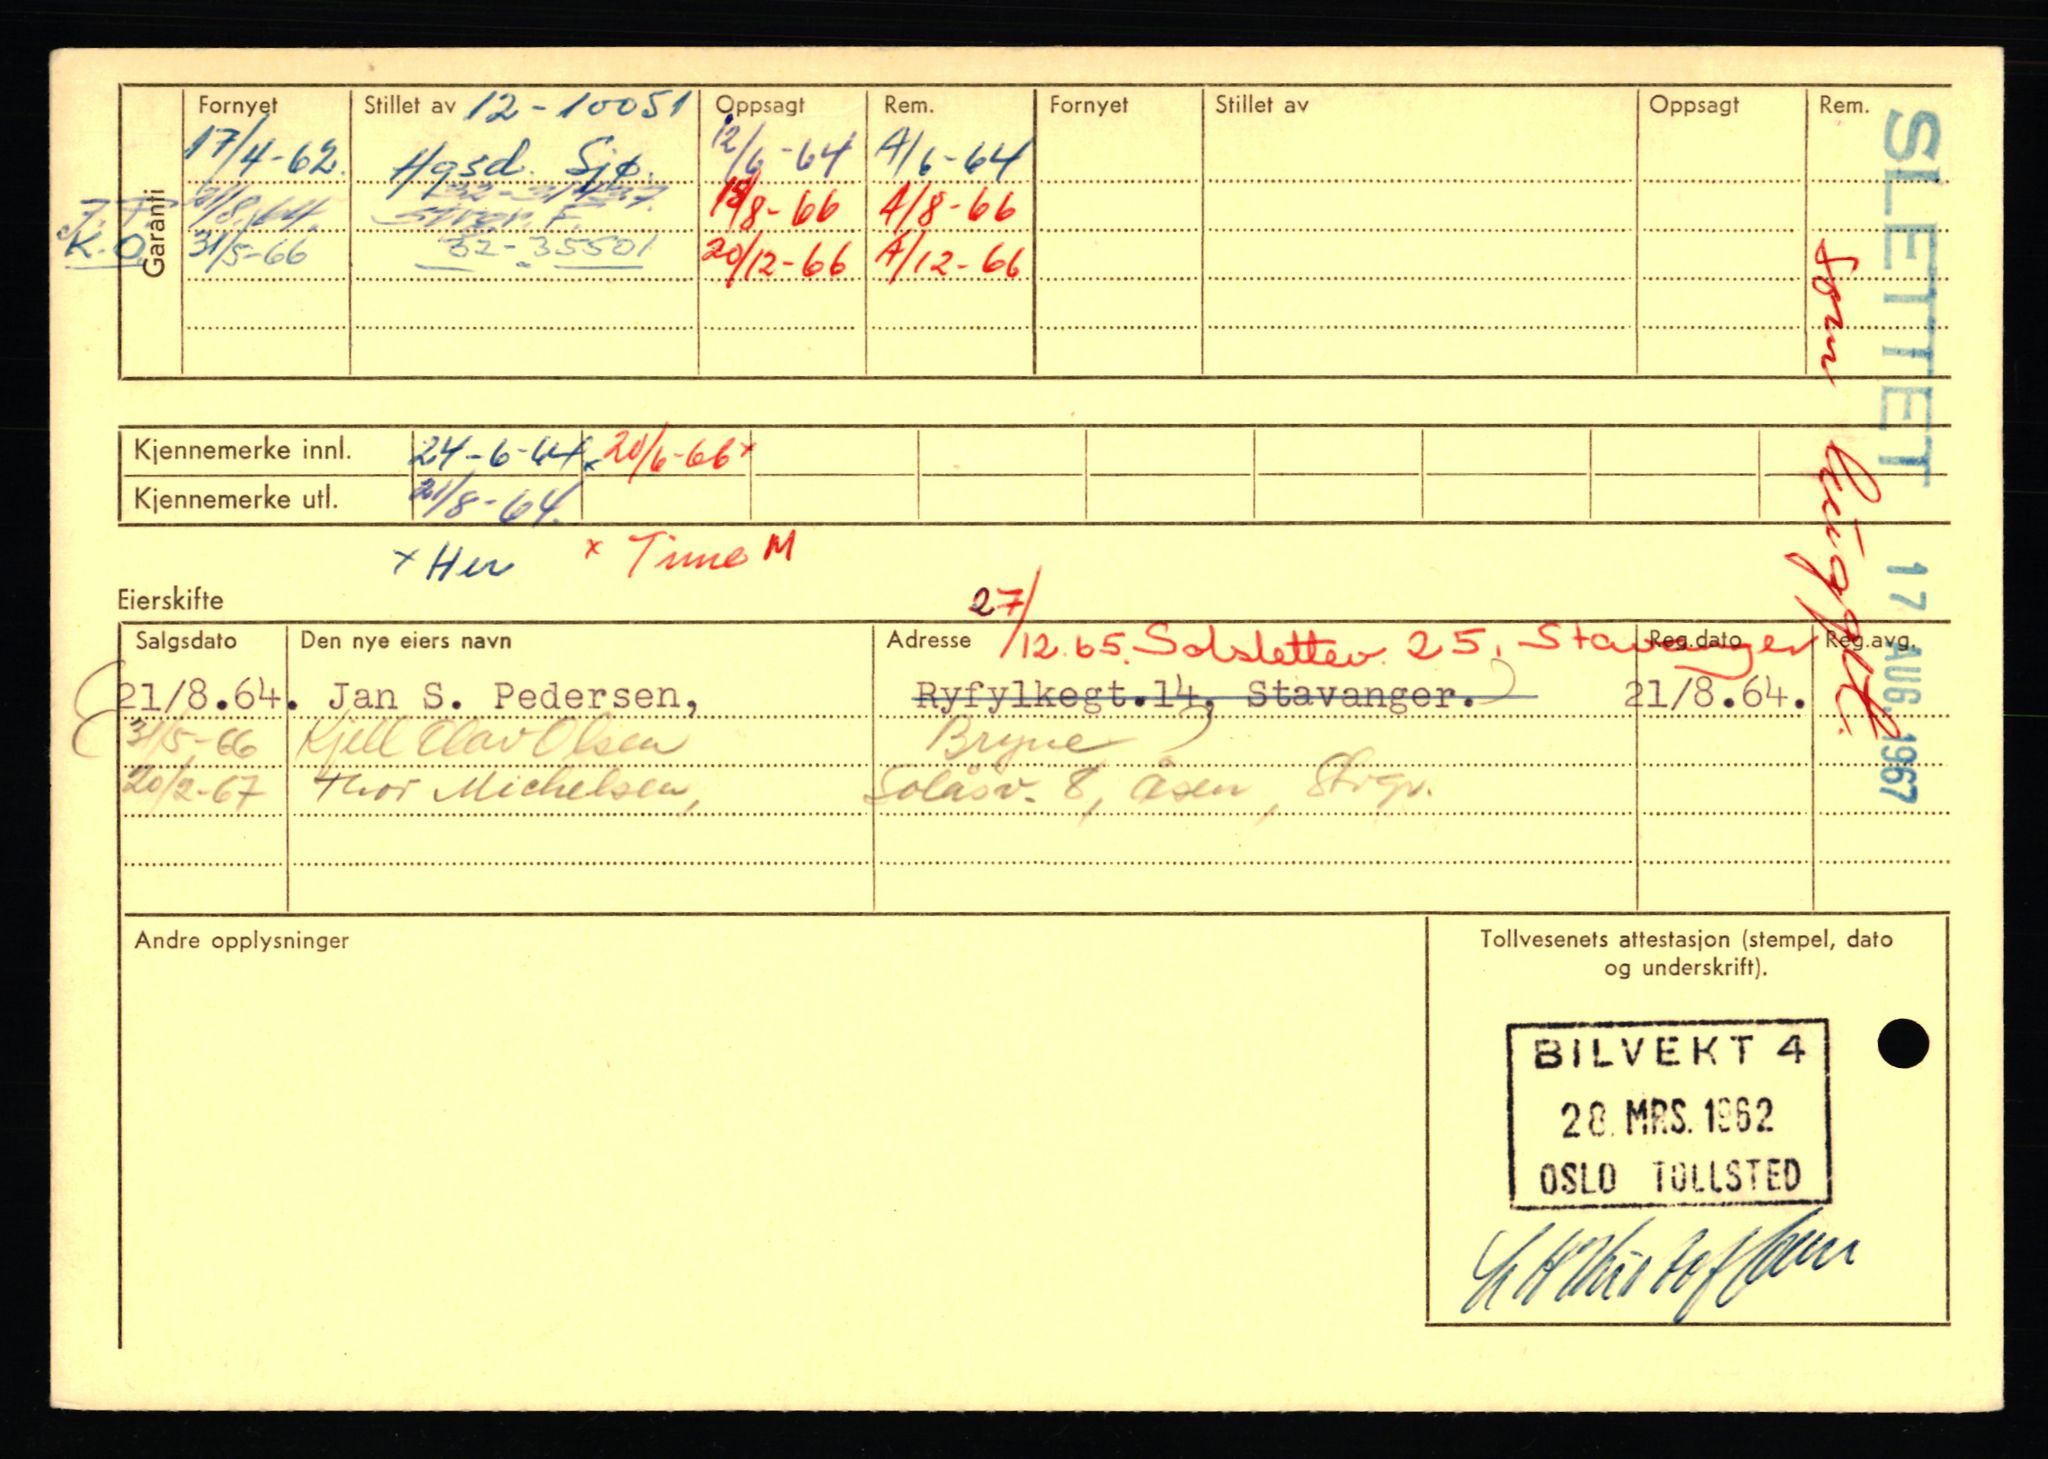 Fornyet Stillet av 12-10051 Oppsagt Rem. Fornyet Stillet av Oppsagt Rem.
17/4-62. Hgsd. Sjø. 12/6-64 A/6-64
21/8.64. Stvgr. F. 18/8-66 A/8-66
K.O. 31/5-66 32-35501 20/12-66 A/12-66
Garanti
SLETTET 17 AUG. 1967
som
Kjennemerke innl. 24-6-64x 20/6-66x
Kjennemerke utl. 21/8-64.
x Her x Time M
Eierskifte
27/12.65. Solslettev. 25, Stavanger
Salgsdato Den nye eiers navn Adresse Reg.dato Reg.avg.
21/8.64. Jan S. Pedersen, Ryfylkegt.14, Stavanger. 21/8.64.
31/5-66 Kjell Olav Olsen Bryne
20/2-67 Thor Michelsen, Solåsv. 8, Åsen, Stvgr.
Andre opplysninger
Tollvesenets attestasjon (stempel, dato
og underskrift).
BILVEKT 4
28. MRS. 1962
OSLO TOLLSTED